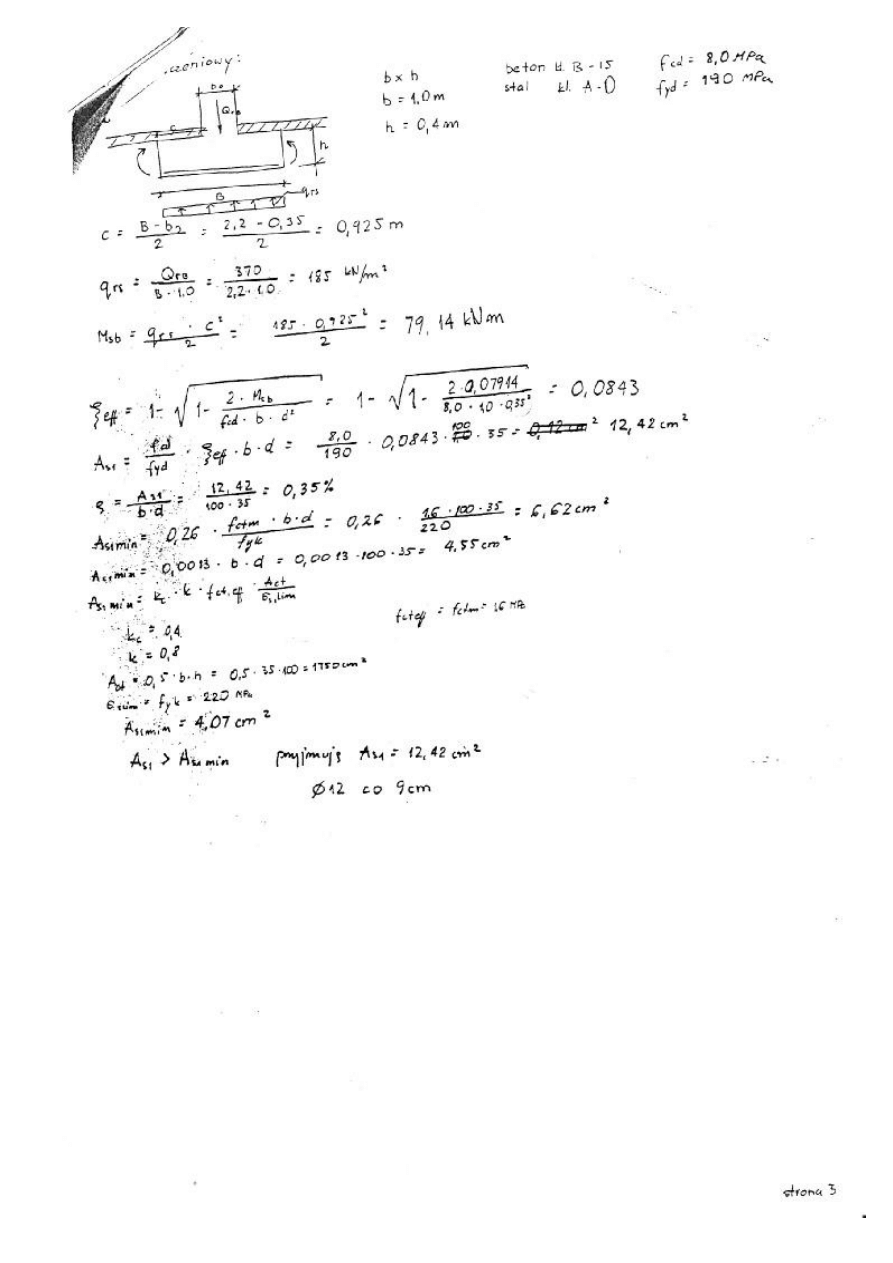 czeniowy:
b x h
b = 1,0 m
h = 0,4 m
beton kl. B-15
stal kl. A-0
fcd = 8,0 MPa
fyd = 190 MPa
C
h
B
qrs
C = (B - b2)/2 = (2,2 - 0,35)/2 = 0,925 m
qrs = Qrs/(B · 1,0) = 370/(2,2 · 1,0) = 185 kN/m²
Msb = (qrs · C²)/2 = (185 · 0,925²)/2 = 79,14 kNm
ξeff = 1 - √(1 - (2 · Msb)/(fcd · b · d²)) = 1 - √(1 - (2 · 0,07914)/(8,0 · 1,0 · 0,35²)) = 0,0843
As1 = fcd/fyd · ξeff · b · d = 8,0/190 · 0,0843 · 100 · 35 = 12,42 cm²
ρ = As1/(b·d) = 12,42/(100·35) = 0,35%
As1min = 0,26 · (fctm · b·d)/fyk = 0,26 · (1,6 · 100 · 35)/220 = 6,62 cm²
As1min = 0,0013 · b · d = 0,0013 · 100 · 35 = 4,55 cm²
As1min = kc · k · fct,eff · Act/σs,lim
kc = 0,4
k = 0,8
fcteff = fctm = 1,6 MPa
Act = 0,5 · b · h = 0,5 · 35 · 100 = 1750 cm²
σslim = fyk = 220 MPa
As1min = 4,07 cm²
As1 > As1min przyjmuję As1 = 12,42 cm²
Ø12 co 9cm
strona 3